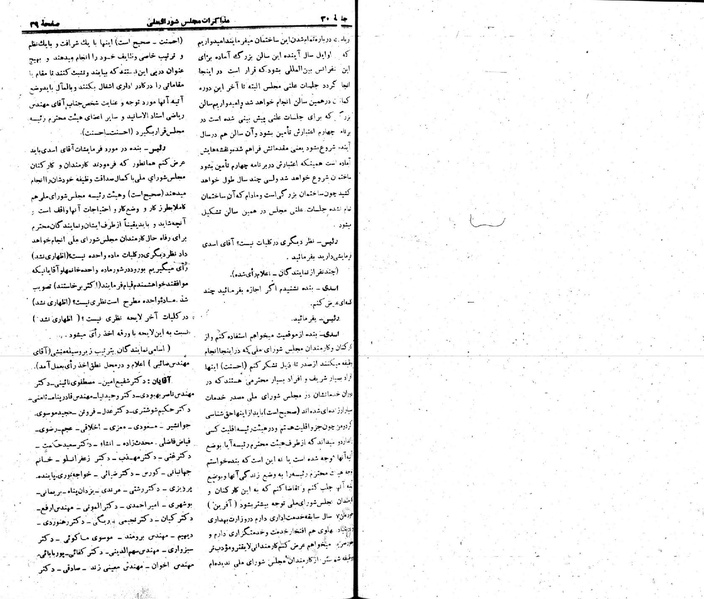 جلسه ۳۰ مذاکرات مجلس شورایملی صفحهٔ ۳۹
درباره تمام شدن این ساختمان میفرمایند امیدواریم
که اوایل سال آینده این سالن بزرگ آماده برای
این کنفرانس بین‌المللی بشود که قرار است در اینجا
گردد جلسات علنی مجلس البته تا آخر این دوره
در همین سالن انجام خواهد شد و امیدواریم سالن
که برای جلسات علنی پیش بینی شده است در
برنامه چهارم اعتبارش تأمین بشود و آن سالن هم در سال
آینده شروع بشود یعنی مقدماتش فراهم شده و نقشه‌هایش
آماده است همینکه اعتبارش در برنامه چهارم تأمین بشود
ساختمان شروع خواهد شد ولی چند سال طول خواهد
کشید چون ساختمان بزرگی است و مادام که آن ساختمان
تمام نشده جلسات علنی مجلس در همین سالن تشکیل
میشود
رئیس ـ نظر دیگری در کلیات نیست؟ آقای اسدی
فرمایشی دارید بفرمائید.
(چند نفر از نمایندگان ـ اعلام رأی شده).
اسدی ـ بنده نشنیدم اگر اجازه بفرمائید چند
کلمه‌ای عرض کنم.
رئیس ـ بفرمائید.
اسدی ـ بنده از موقعیت میخواهم استفاده کنم و از
کارکنان و کارمندان مجلس شورای ملی که در اینجا انجام
وظیفه میکنند از صدر تا ذیل تشکر کنم (احسنت) اینها
افراد بسیار شریف و افراد بسیار محترمی هستند که در
دوران خدماتشان در مجلس شورای ملی مصدر خدمات
شده‌اند (صحیح است) باید از اینها حق شناسی
چون جزو اقلیت هستم و در هیئت رئیسه اقلیت کسی
را ندارد میداند که از طرف هیئت محترم رئیسه آیا بوضع
آنها توجه شده است یا نه این است که بنده خواستم
توجه هیئت محترم رئیسه را به وضع زندگی آنها و وضع
آنها جلب کنم و تقاضا کنم که به این کارکنان و
کارمندان مجلس شورای ملی توجه بیشتر بشود (آفرین)
سال سابقه خدمت اداری دارم در وزارت بهداری
هم افتخار خدمت و خدمتگزاری دارم و
میخواهم عرض کنم کارمندانی لایقتر و مؤدب‌تر
از کارمندان مجلس شورای ملی ندیده‌ام
(احسنت ـ صحیح است) اینها با یک شرافت و با یک نظم
و ترتیب خاصی وظایف خود را انجام میدهند و بهیچ
عنوان در پی این نیستند که بیایند و تشبث کنند تا مقام یا
مقاماتی را در کادر اداری اشغال بکنند و بالمآل باید وضع
آتیه آنها مورد توجه و عنایت شخص جناب آقای مهندس
ریاضی استاد الاساتید و سایر اعضای هیئت محترم رئیسه
مجلس قرار بگیرد (احسنت، احسنت).
رئیس ـ بنده در مورد فرمایشات آقای اسدی باید
عرض کنم همانطور که فرمودند کارمندان و کارکنان
مجلس شورای ملی با کمال صداقت وظیفه خودشان را انجام
میدهند (صحیح است) و هیئت رئیسه مجلس شورای ملی هم
کاملا بطرز کار و وضع کار و احتیاجات آنها واقف است و
آنچه شاید و باید یقیناً از طرف ایشان و نمایندگان محترم
برای رفاه حال کارمندان مجلس شورای ملی انجام خواهد
داد نظر دیگری در کلیات ماده واحده نیست؟ (اظهاری نشد)
رأی میگیریم بورود در شور ماده واحده خانمها و آقایانیکه
موافقند خواهشمندم قیام فرمایند (اکثر برخاستند) تصویب
شد. ماده واحده مطرح است نظری نیست؟ (اظهاری نشد)
در کلیات آخر لایحه نظری نیست؟ (اظهاری نشد)
نسبت به این لایحه با ورقه اخذ رأی میشود.
(اسامی نمایندگان بترتیب زیر وسیله منشی (آقای
مهندس صائبی) اعلام و در محل نطق اخذ رأی بعمل آمد).
آقایان: دکتر شفیع امین ـ مصطفوی نائینی ـ دکتر
مهندس ناصر بهبودی ـ دکتر وحیدنیا ـ مهندس قادرپناه ـ ثامنی ـ
دکتر حکیم شوشتری ـ دکتر عدل ـ فروغن ـ حمید موسوی.
جوانشیر ـ مسعودی ـ معزی ـ اخلاقی ـ عجم ـ رضوی ـ
فیاض فاضلی ـ محدث‌زاده ـ انشاء ـ دکتر سعید حکمت ـ
دکتر غنی ـ دکتر مهذب ـ دکتر زعفرانلو ـ خانم
جهانبانی ـ کورس ـ دکتر ضیائی ـ خواجه نوری ـ پاینده.
پرویزی ـ دکتر رشتی ـ مرندی ـ یزدان پناه ـ بریمانی ـ
بوشهری ـ امیر احمدی ـ دکتر الموتی ـ مهندس ارفع ـ
دکتر کیان ـ دکتر نجیمی ـ دکتر رهنوردی ـ
دیهیم ـ مهندس برومند ـ موسوی ماکوئی ـ دکتر
سبزواری ـ مهندس سهم‌الدینی ـ دکتر کفائی ـ پوربابائی ـ
مهندس اخوان ـ مهندس معینی زند ـ صادقی ـ دکتر